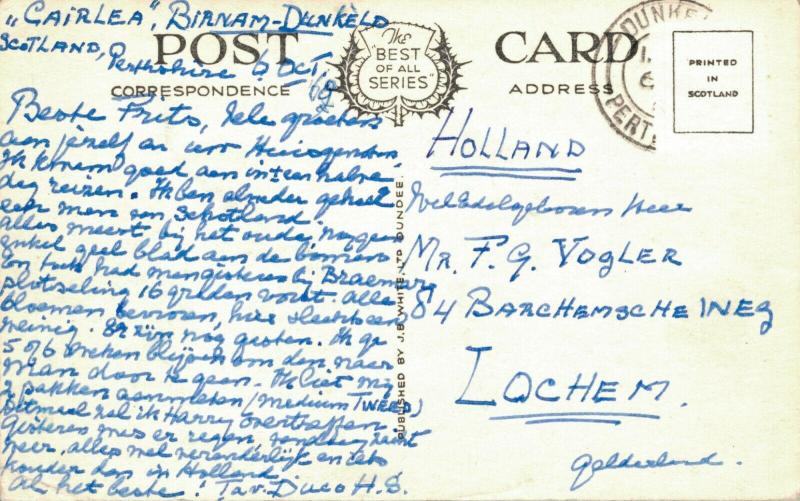 „CAIRLEA", BIRNAM-DUNKELD
SCOTLAND, Perthshire 6 OCT.
POST CARD
CORRESPONDENCE ADDRESS
The
"BEST
OF ALL
SERIES"
PRINTED
IN
SCOTLAND
DUNKEL
PERT
Beste Frits, Vele groeten
aan jezelf en uw Huisgenoten,
Ik kwam goed aan in een halve
dag reizen. Ik ben alweder geheel
een man van Schotland
alles weert bij het oude, nog geen
enkel geel blad aan de bomen
En toch had men gisteren bij Braemar
plotseling 16 graden vorst. Alle
bloemen bevroren, hier slechts een
weinig. Er zijn nog gasten. Ik ga
5 of 6 weken blijven om dan naar
man door te gaan. Ik liet mij
2 pakken aanmeten (medium TWEED)
Ditmaal zal ik Harry overtreffen.
Gisteren was er regen, vandaag zacht
weer, alles wel veranderlijk en iets
kouder dan in Holland
Al het beste! Tav. Duco H.S.
PUBLISHED BY J.B. WHITE LTD. DUNDEE.
HOLLAND
WelEdelgeboren Heer
MR. F. G. VOGLER
84 BARCHEMSCHEWEG
LOCHEM.
Gelderland.